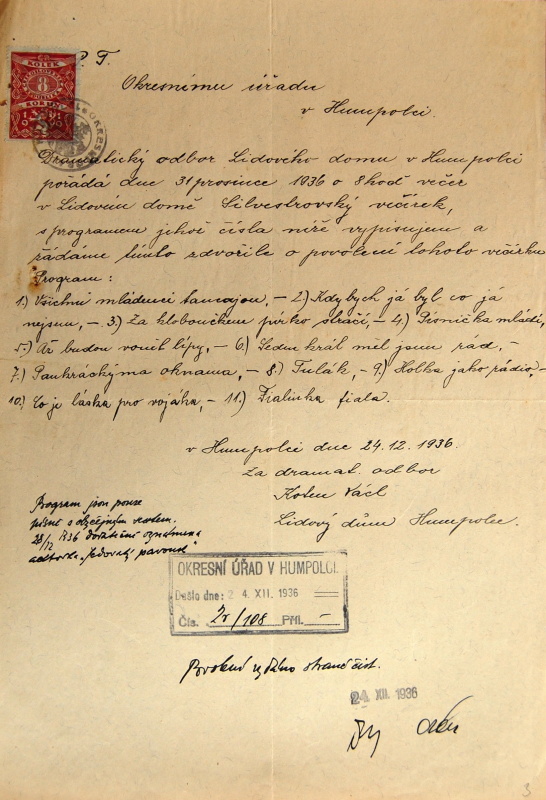 P. T.
KOLEK
8
Okresnímu úřadu
v Humpolci.
Dramatický odbor Lidového domu v Humpolci
pořádá dne 31 prosince 1936 o 8 hod večer
v Lidovém domě Silvestrovský večírek,
s programem jehož čísla níže vypisujem a
žádáme tímto zdvořile o povolení tohoto večírku
Program:
1.) Všichni mládenci tancujou, – 2.) Kdybych já byl co já
nejsem, – 3.) Za kloboučkem pírko strčí, – 4.) Písnička mládí,
5.) Až budou vonit lípy, – 6.) Sedm král měl jsem rád, –
7.) Pankráckýma oknama, – 8.) Tulák, – 9.) Holka jako rádio, –
10.) Co je láska pro vojáka, – 11.) Fialinka fiala.
v Humpolci dne 24.12. 1936.
Za dramat. odbor
Koten Václ
Lidový dům Humpolec.
Program jsou pouze
písně s
28/12 1936 dodatečně oznámena
aktovka "Jedovatý pavouk"
OKRESNÍ ÚŘAD V HUMPOLCI.
Došlo dne: 2 4. XII. 1936
Čís. Zv/108 Příl. –
Povolení vydáno straně číst.
24. XII. 1936
3